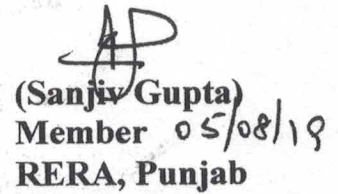 (Sanjiv Gupta)
Member 05/08/19
RERA, Punjab